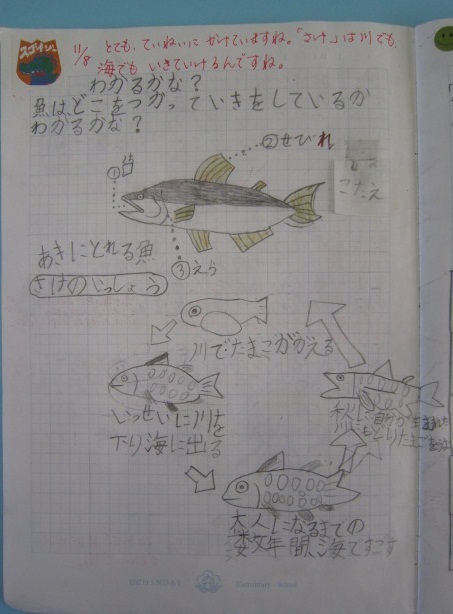 スゴイ
11/8 とても、ていねいに かけていますね。「さけ」は川でも、
海でも いきていけるんですね。
わかるかな？
魚は、どこをつかっていきをしているか
わかるかな？
①
②せびれ
こたえ
③えら
あきにとれる魚
さけのいっしょう
川でたまごがかえる
いっせいに川を
下り海に出る
大人になるまでの
数年間、海ですごす